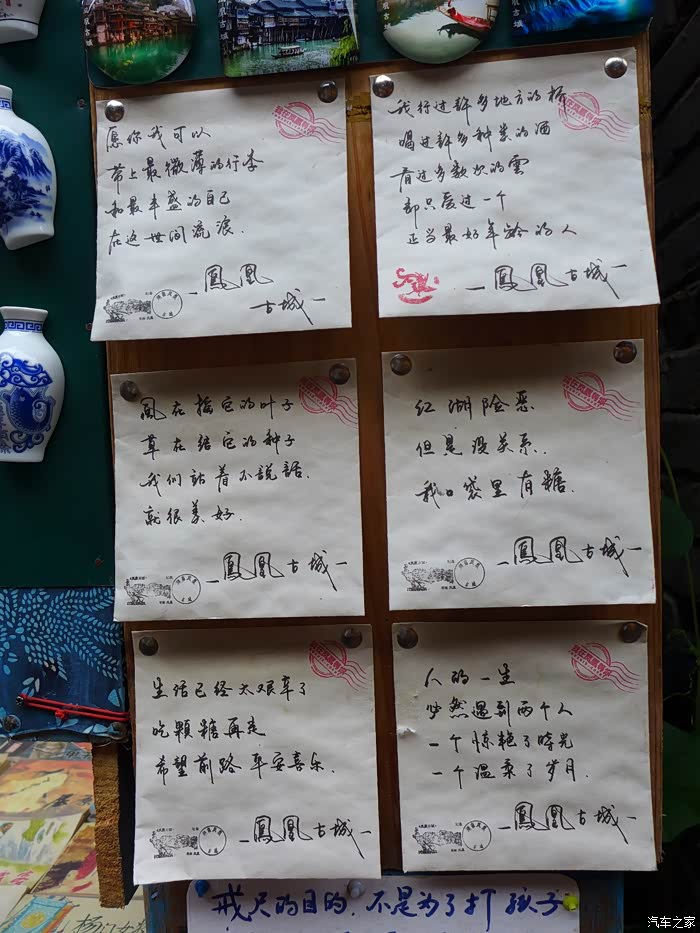 愿你我可以
带上最微薄的行李
和最丰盛的自己
在这世间流浪.
—鳳凰
古城—
我行过許多地方的桥
喝过許多种类的酒
看过多数次的雲
却只爱过一个
正当最好年龄的人
—鳳凰古城—
風在摇它的叶子
草在结它的种子
我们站着不説話.
就很美好.
—鳳凰古城—
红湖险恶
但是没关系.
我口袋里有糖.
—鳳凰古城—
生活已经太艰辛了
吃顆糖再走
希望前路平安喜乐.
—鳳凰古城—
人的一生
必然遇到两个人
一个惊艳了時光
一个温柔了岁月.
—鳳凰古城—
戒尺的目的.不是为了打孩子
汽车之家